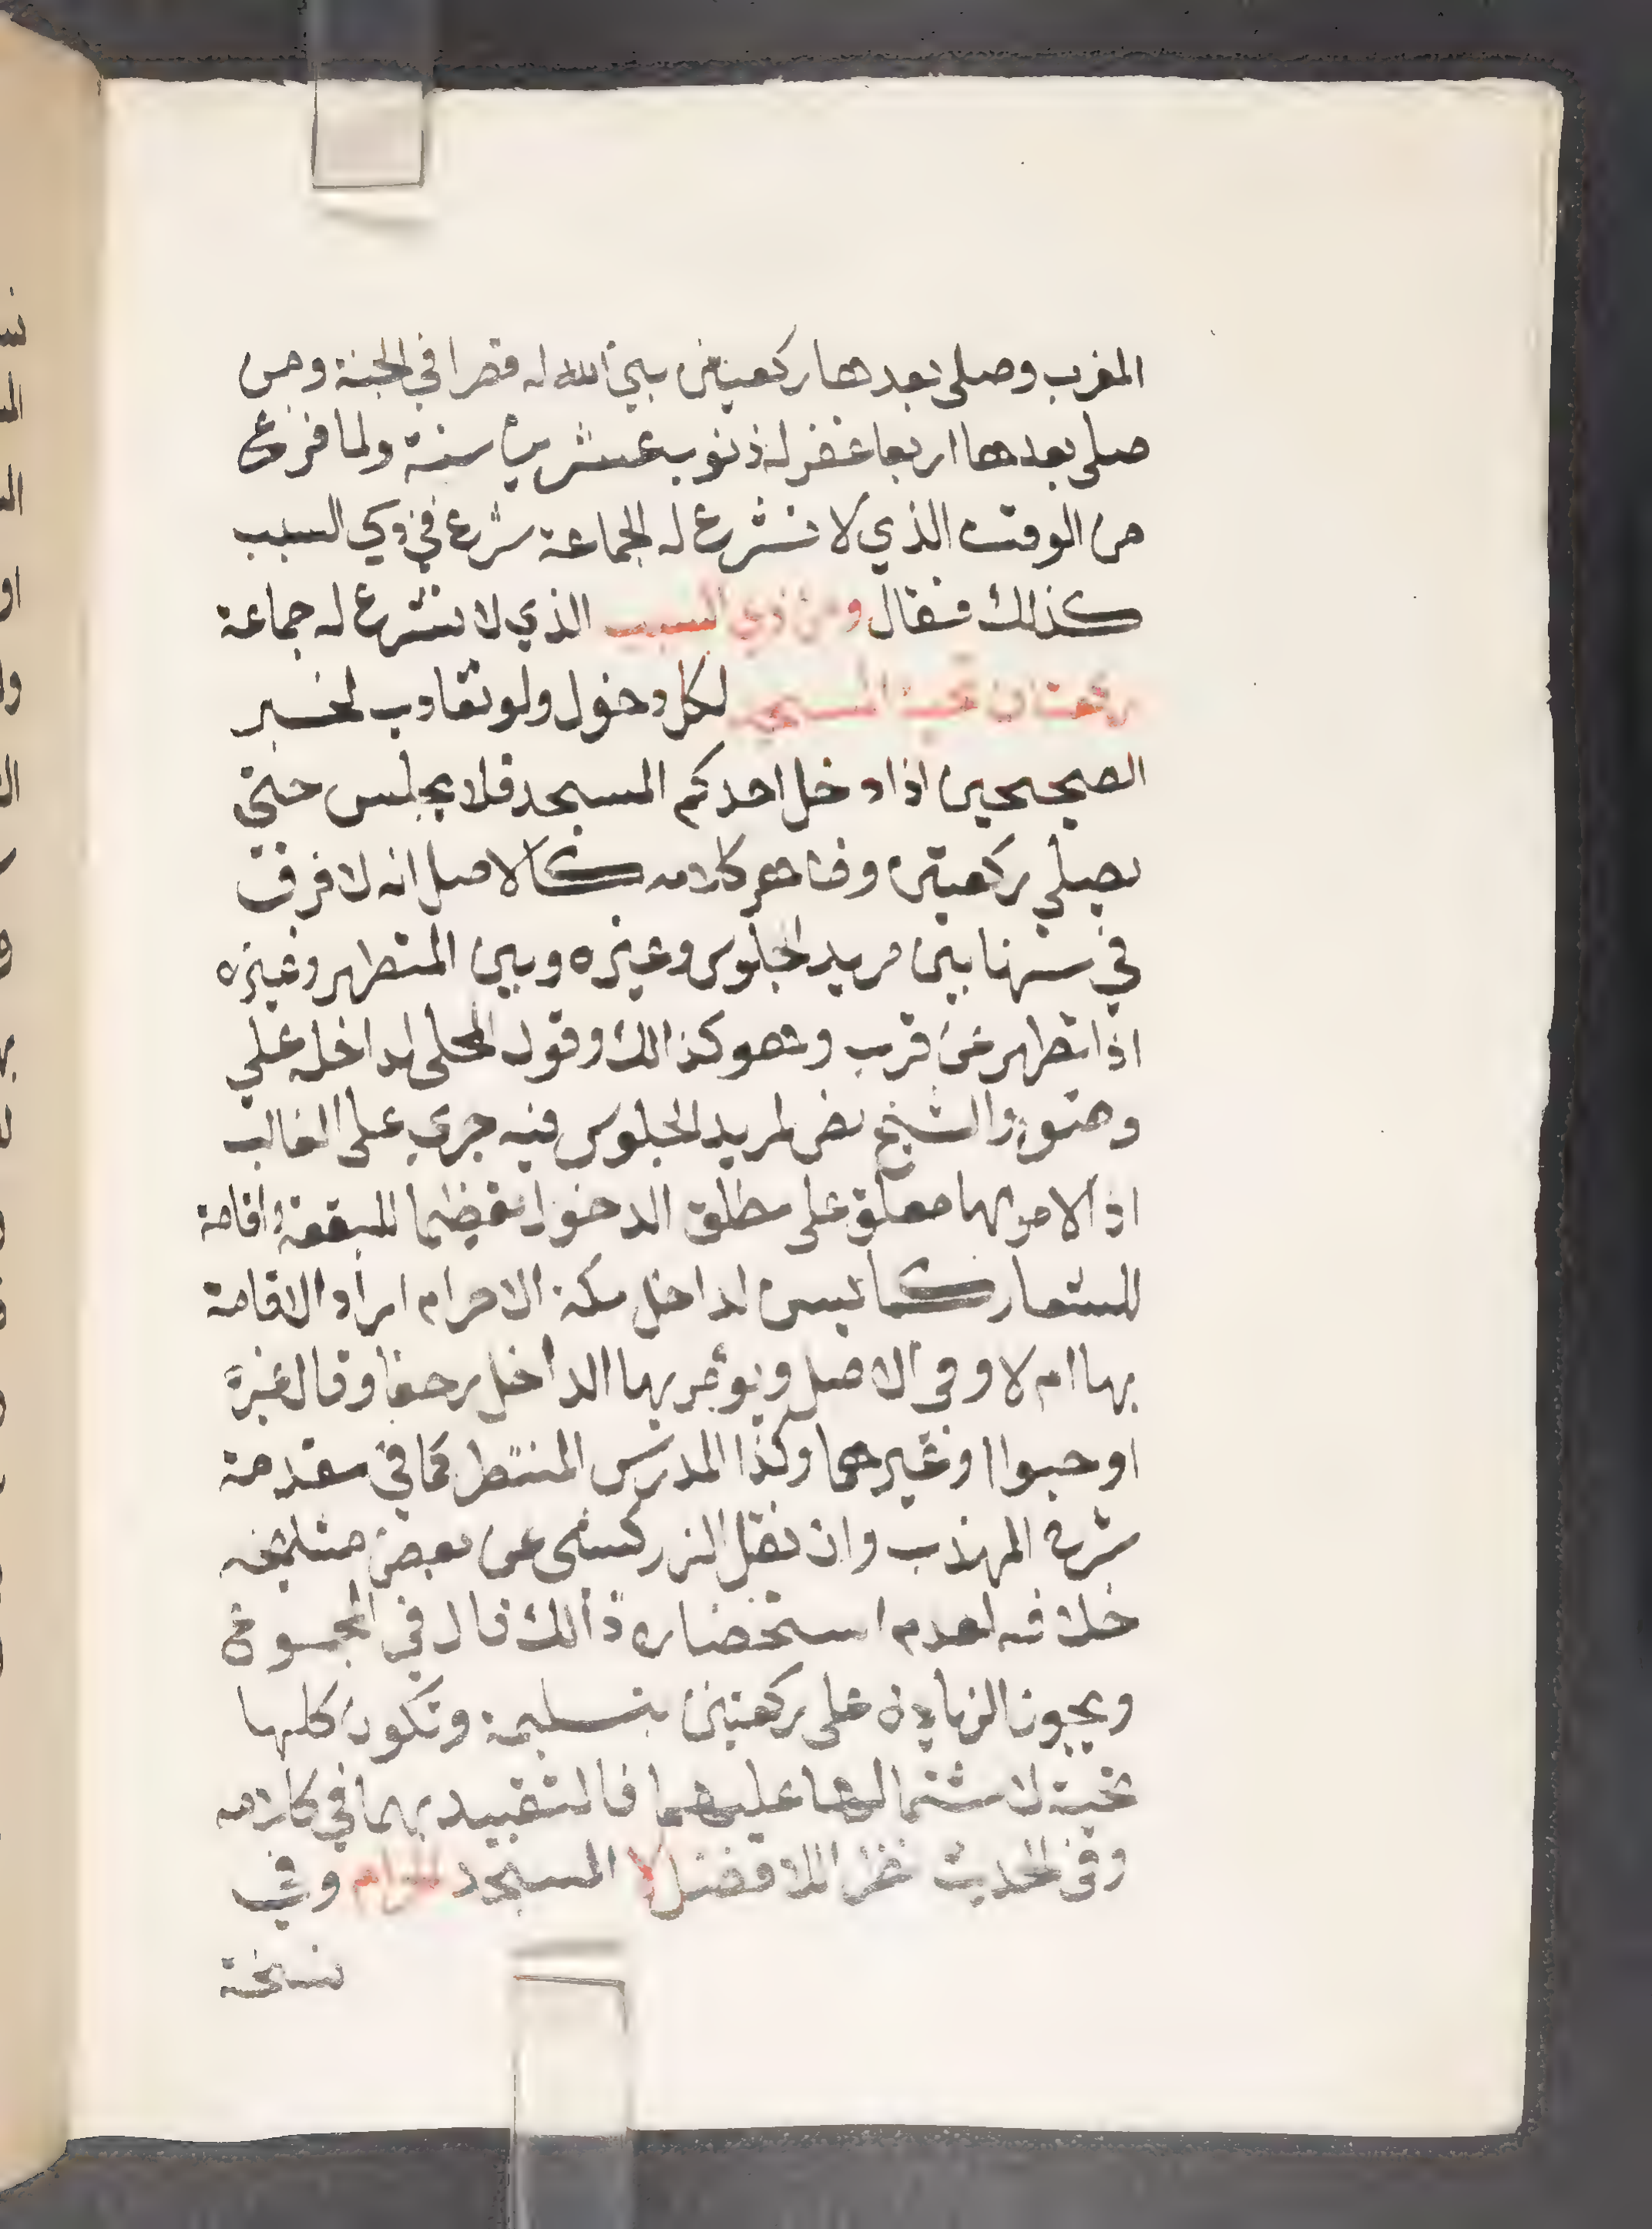 المغرب وصلى بعدها ركعتين بني الله له قصرا في الجنة ومن
صلى بعدها اربعا غفر له ذنوب عشرين سنة ولما فرغ
من الوقت الذي لا تشرع له الجماعة شرع في ذي السبب
كذلك فقال ومن ذي السبب الذي لا تشرع له جماعة
ركعتان تحية المسجد لكل دخول ولو تقارب لخبر
الصحيحين اذا دخل احدكم المسجد فلا يجلس حتى
يصلي ركعتين وظاهر كلامه كالاصل انه لا فرق
في سنها بين مريد الجلوس وغيره وبين المتطهر وغيره
اذا تطهر عن قرب وهو كذالك وقول المحلى لداخله علي
وضوء والشيخ نصر لمريد الجلوس فيه جري على الغالب
اذ الامر بها معلق على مطلق الدخول تعظيما للبقعة واقامة
للشعار كما يسن لداخل مكة الاحرام اراد الاقامة
بها ام لا وفي الاصل ويؤمر بها الداخل زحفا وقال غيره
او حبوا او غيرهما وكذا المدرس المنتظر كما في مقدمة
شرح المهذب وان نقل الزركشى عن بعض مشايخه
خلافه لعدم استحضاره ذالك قال في المجموع
ويجوز الزيادة على ركعتين بتسليمة وتكون كلها
تحية لاشتمالها عليهما فالتقييد بهما في كلامه
وفي الحديث نظر اللافضل لا المسجد الحرام وفي
نسخة